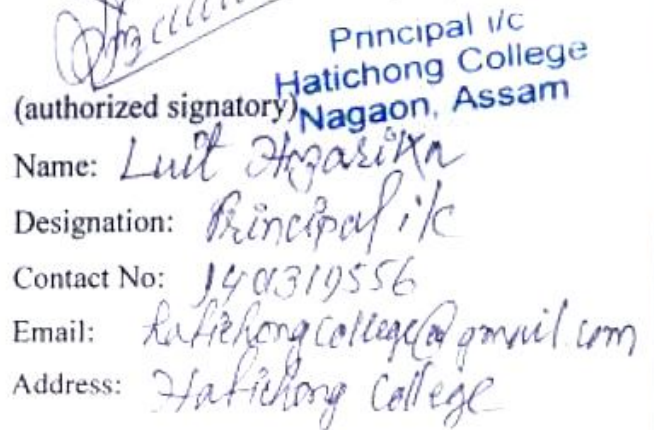 Principal i/c
Hatichong College
Nagaon, Assam
(authorized signatory)
Name: Luit Hazarika
Designation: Principal i/c
Contact No:
Email: hatichongcollege@gmail.com
Address: Hatichong College